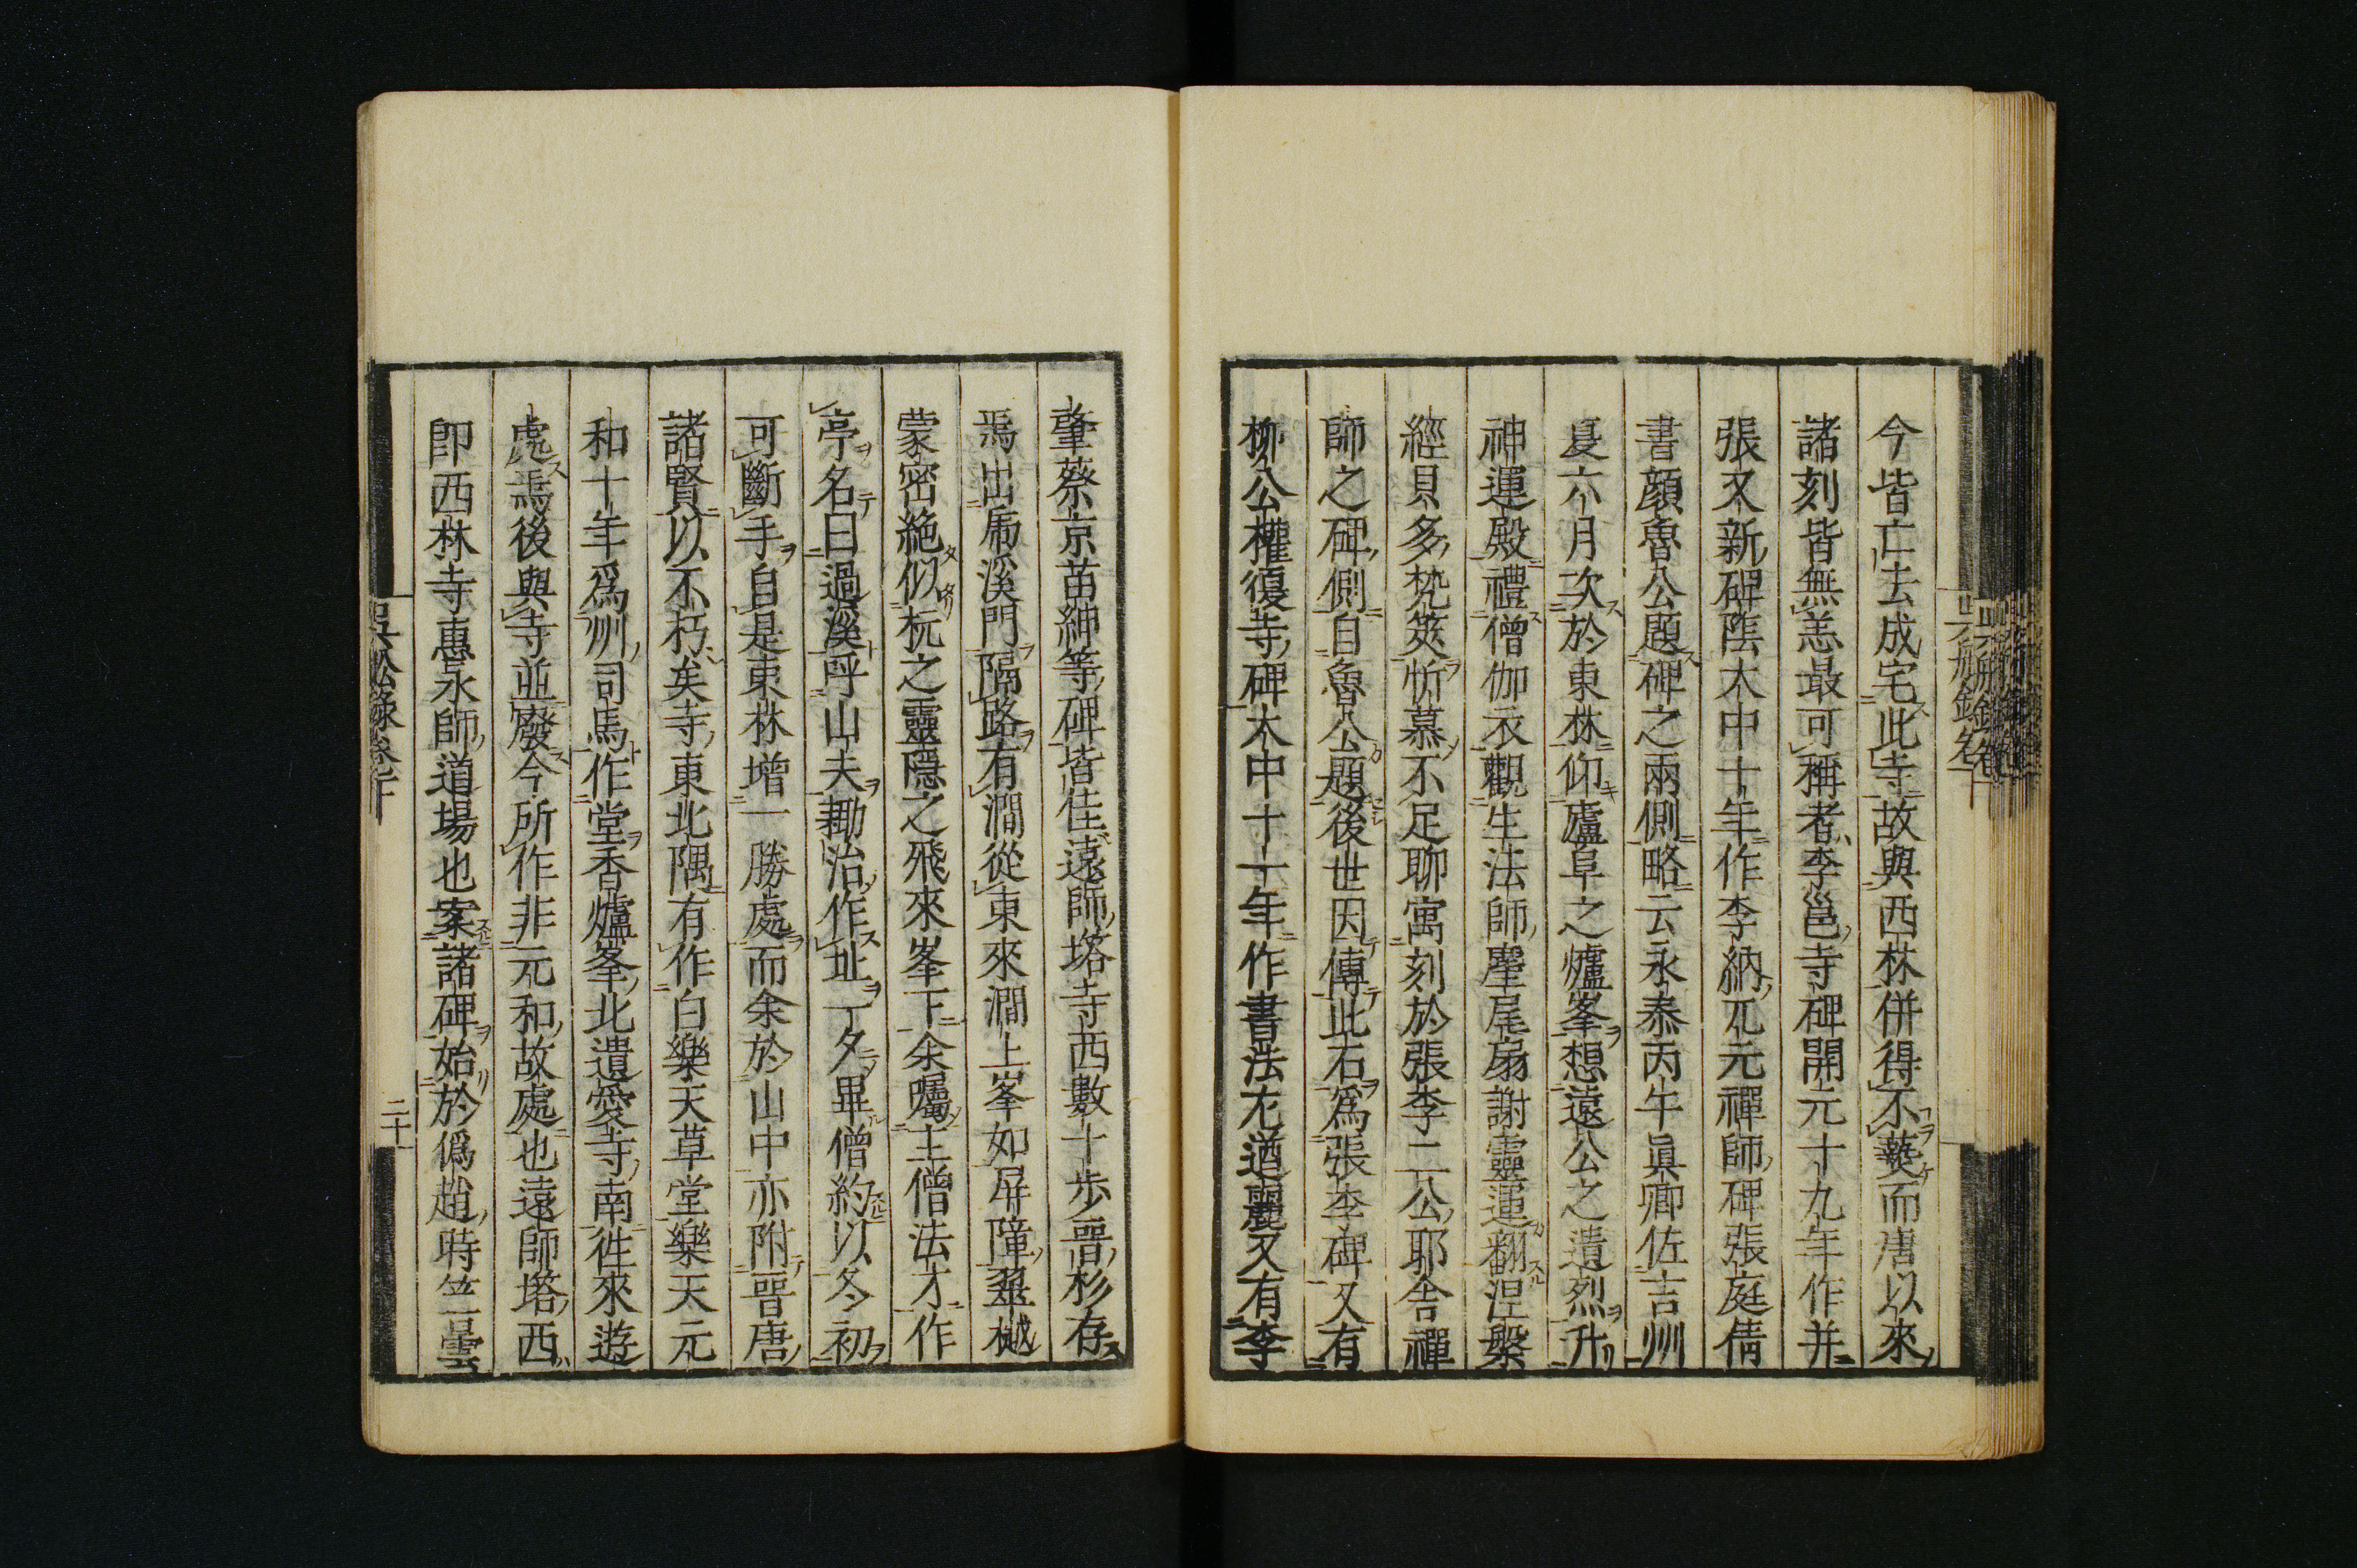 今皆亡去成宅此寺故與西林併得不爇而唐以來
諸刻皆無恙最可稱者李邕寺碑開元十九年作并
張又新碑陰大中十年作李納兀元禪師碑張庭倩
書顔魯公題碑之兩側略云永泰丙午眞卿佐吉州
夏六月次於東林仰廬阜之爐峯想遠公之遺烈升
神運殿禮僧伽衣觀生法師麈尾扇謝靈運翻涅槃
經貝多梵筴忻慕不足聊寓刻於張李二公耶舍禪
師之碑側自魯公題後世因傳此石爲張李碑又有
柳公權復寺碑大中十一年作書法尤遒麗又有李
肇蔡京苗紳等碑皆佳遠師塔寺西數十步晋杉存
焉出虎溪門隔路有澗從東來澗上峯如屏障翠樾
蒙密絶似杭之靈隱之飛來峯下余囑主僧法才作
亭名曰過溪呼山夫耡治作址一夕畢僧約以冬初
可斷手自是東林增一勝處而余於山中亦附晋唐
諸賢以不朽矣寺東北隅有作白樂天草堂樂天元
和十年爲州司馬作堂香爐峯北遺愛寺南往來遊
處焉後與寺並廢今所作非元和故處也遠師塔西
即西林寺惠永師道場也案諸碑始於僞趙時竺曇
呉舩録卷下
二十